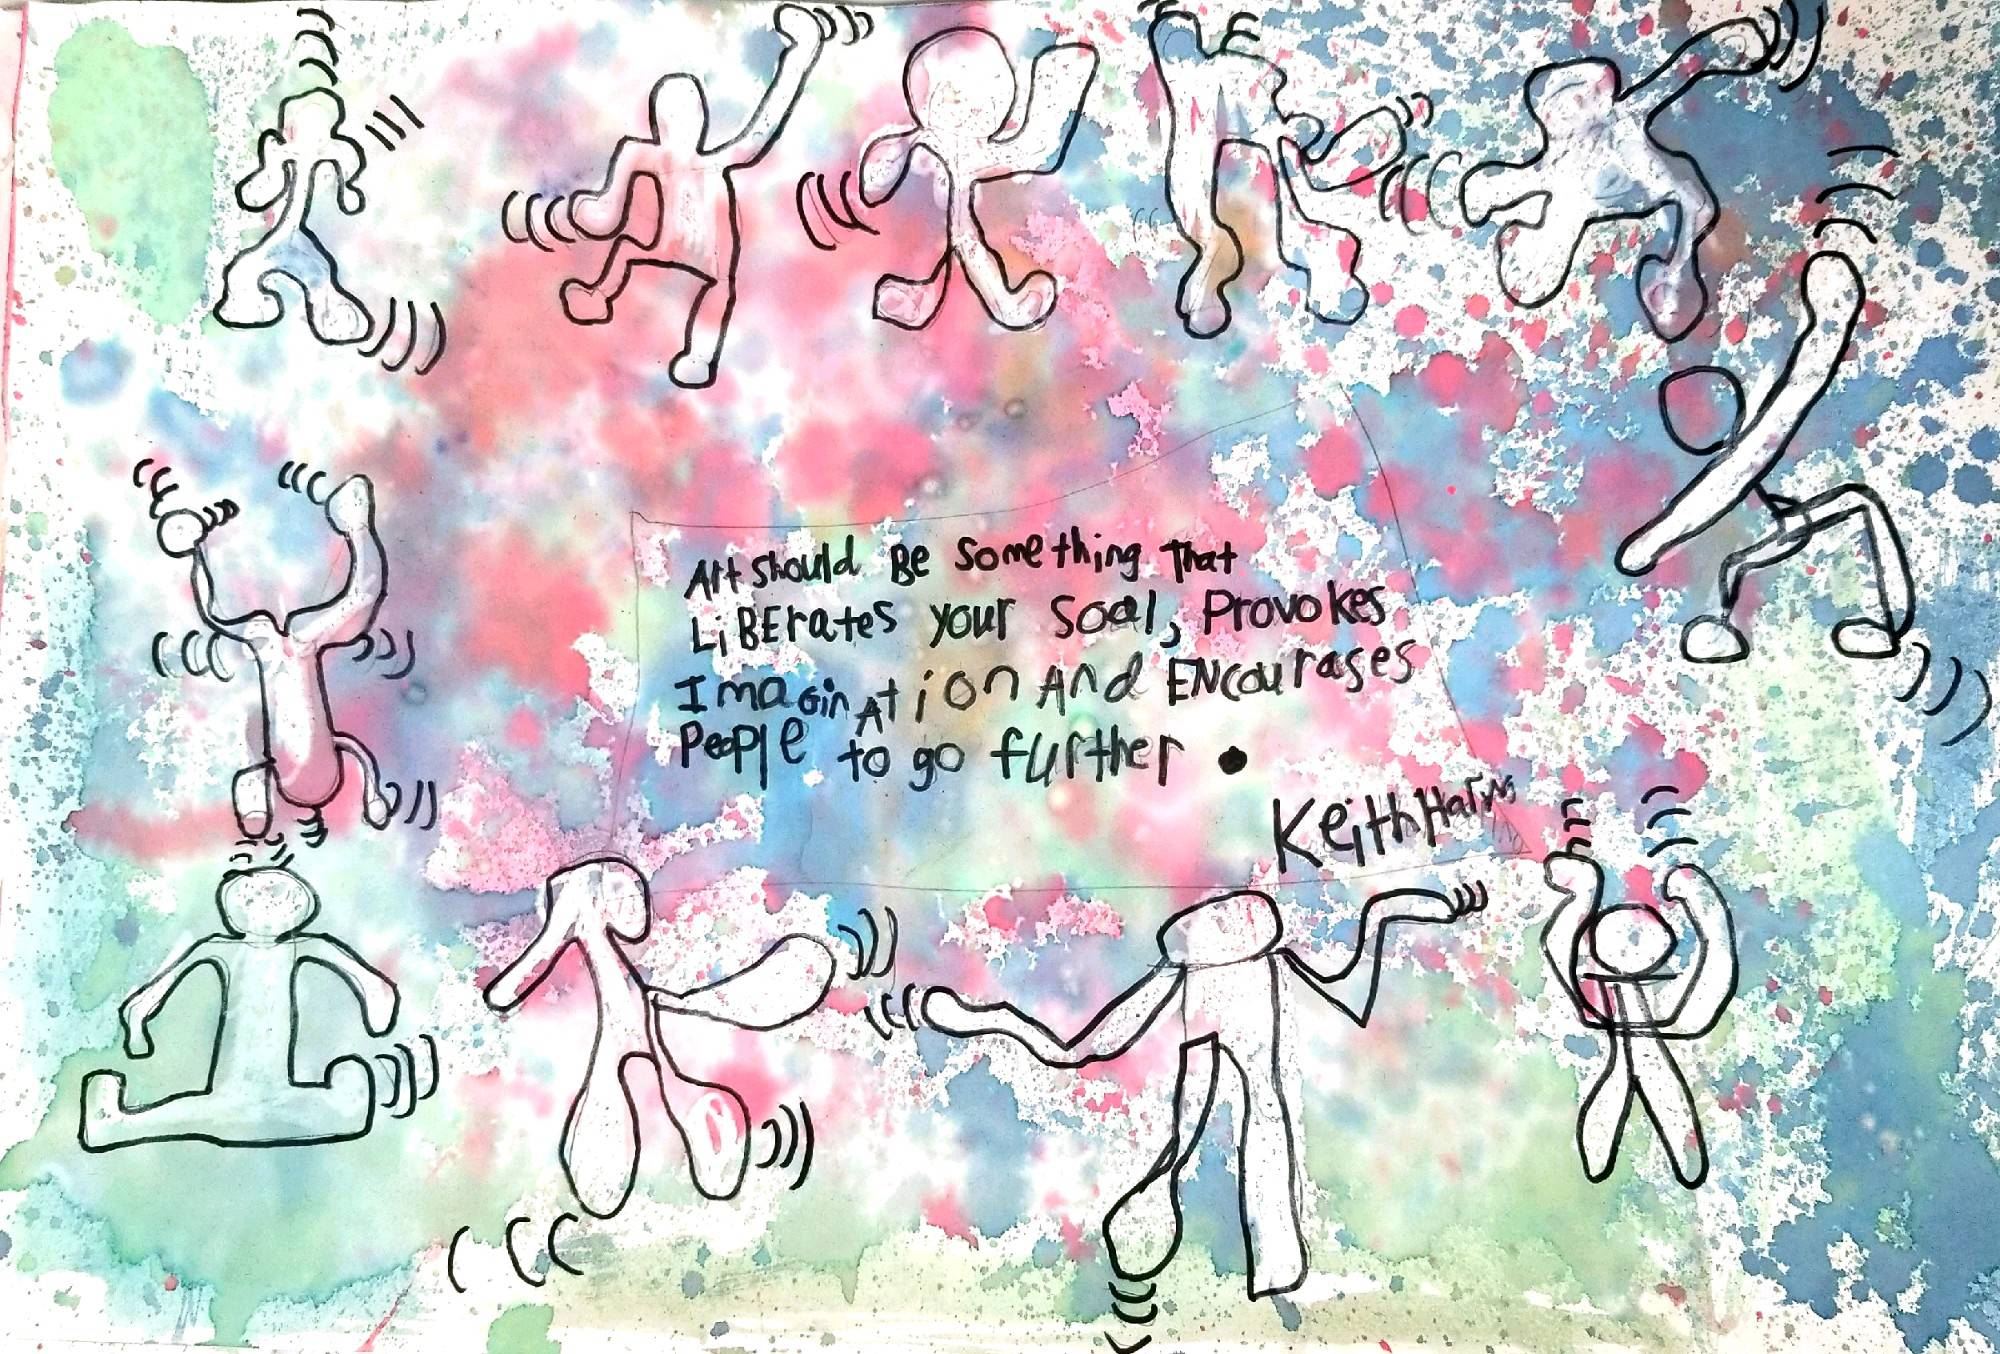 Art should Be something That
LiBErates your soal, Provokes
ImaginAtion And ENcourages
PeoPle to go further .
Keith Haring